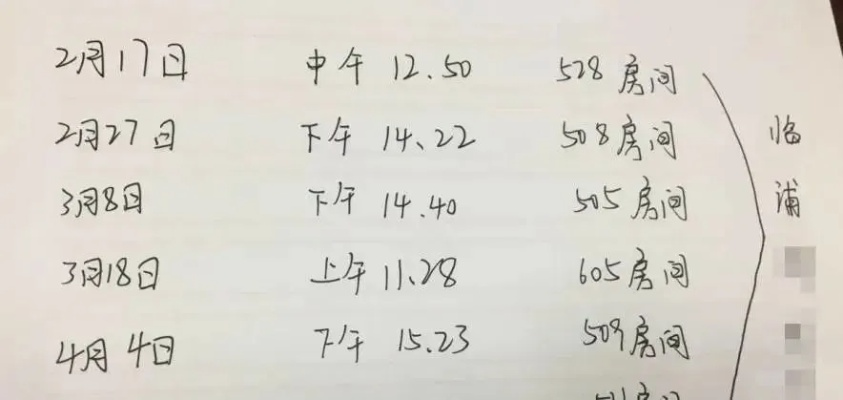 2月17日 中午 12.50 528 房间
2月27日 下午 14.22 508房间
3月8日 下午 14.40 505房间
3月18日 上午 11.28 605房间
4月4日 下午 15.23 509房间
房间
临浦